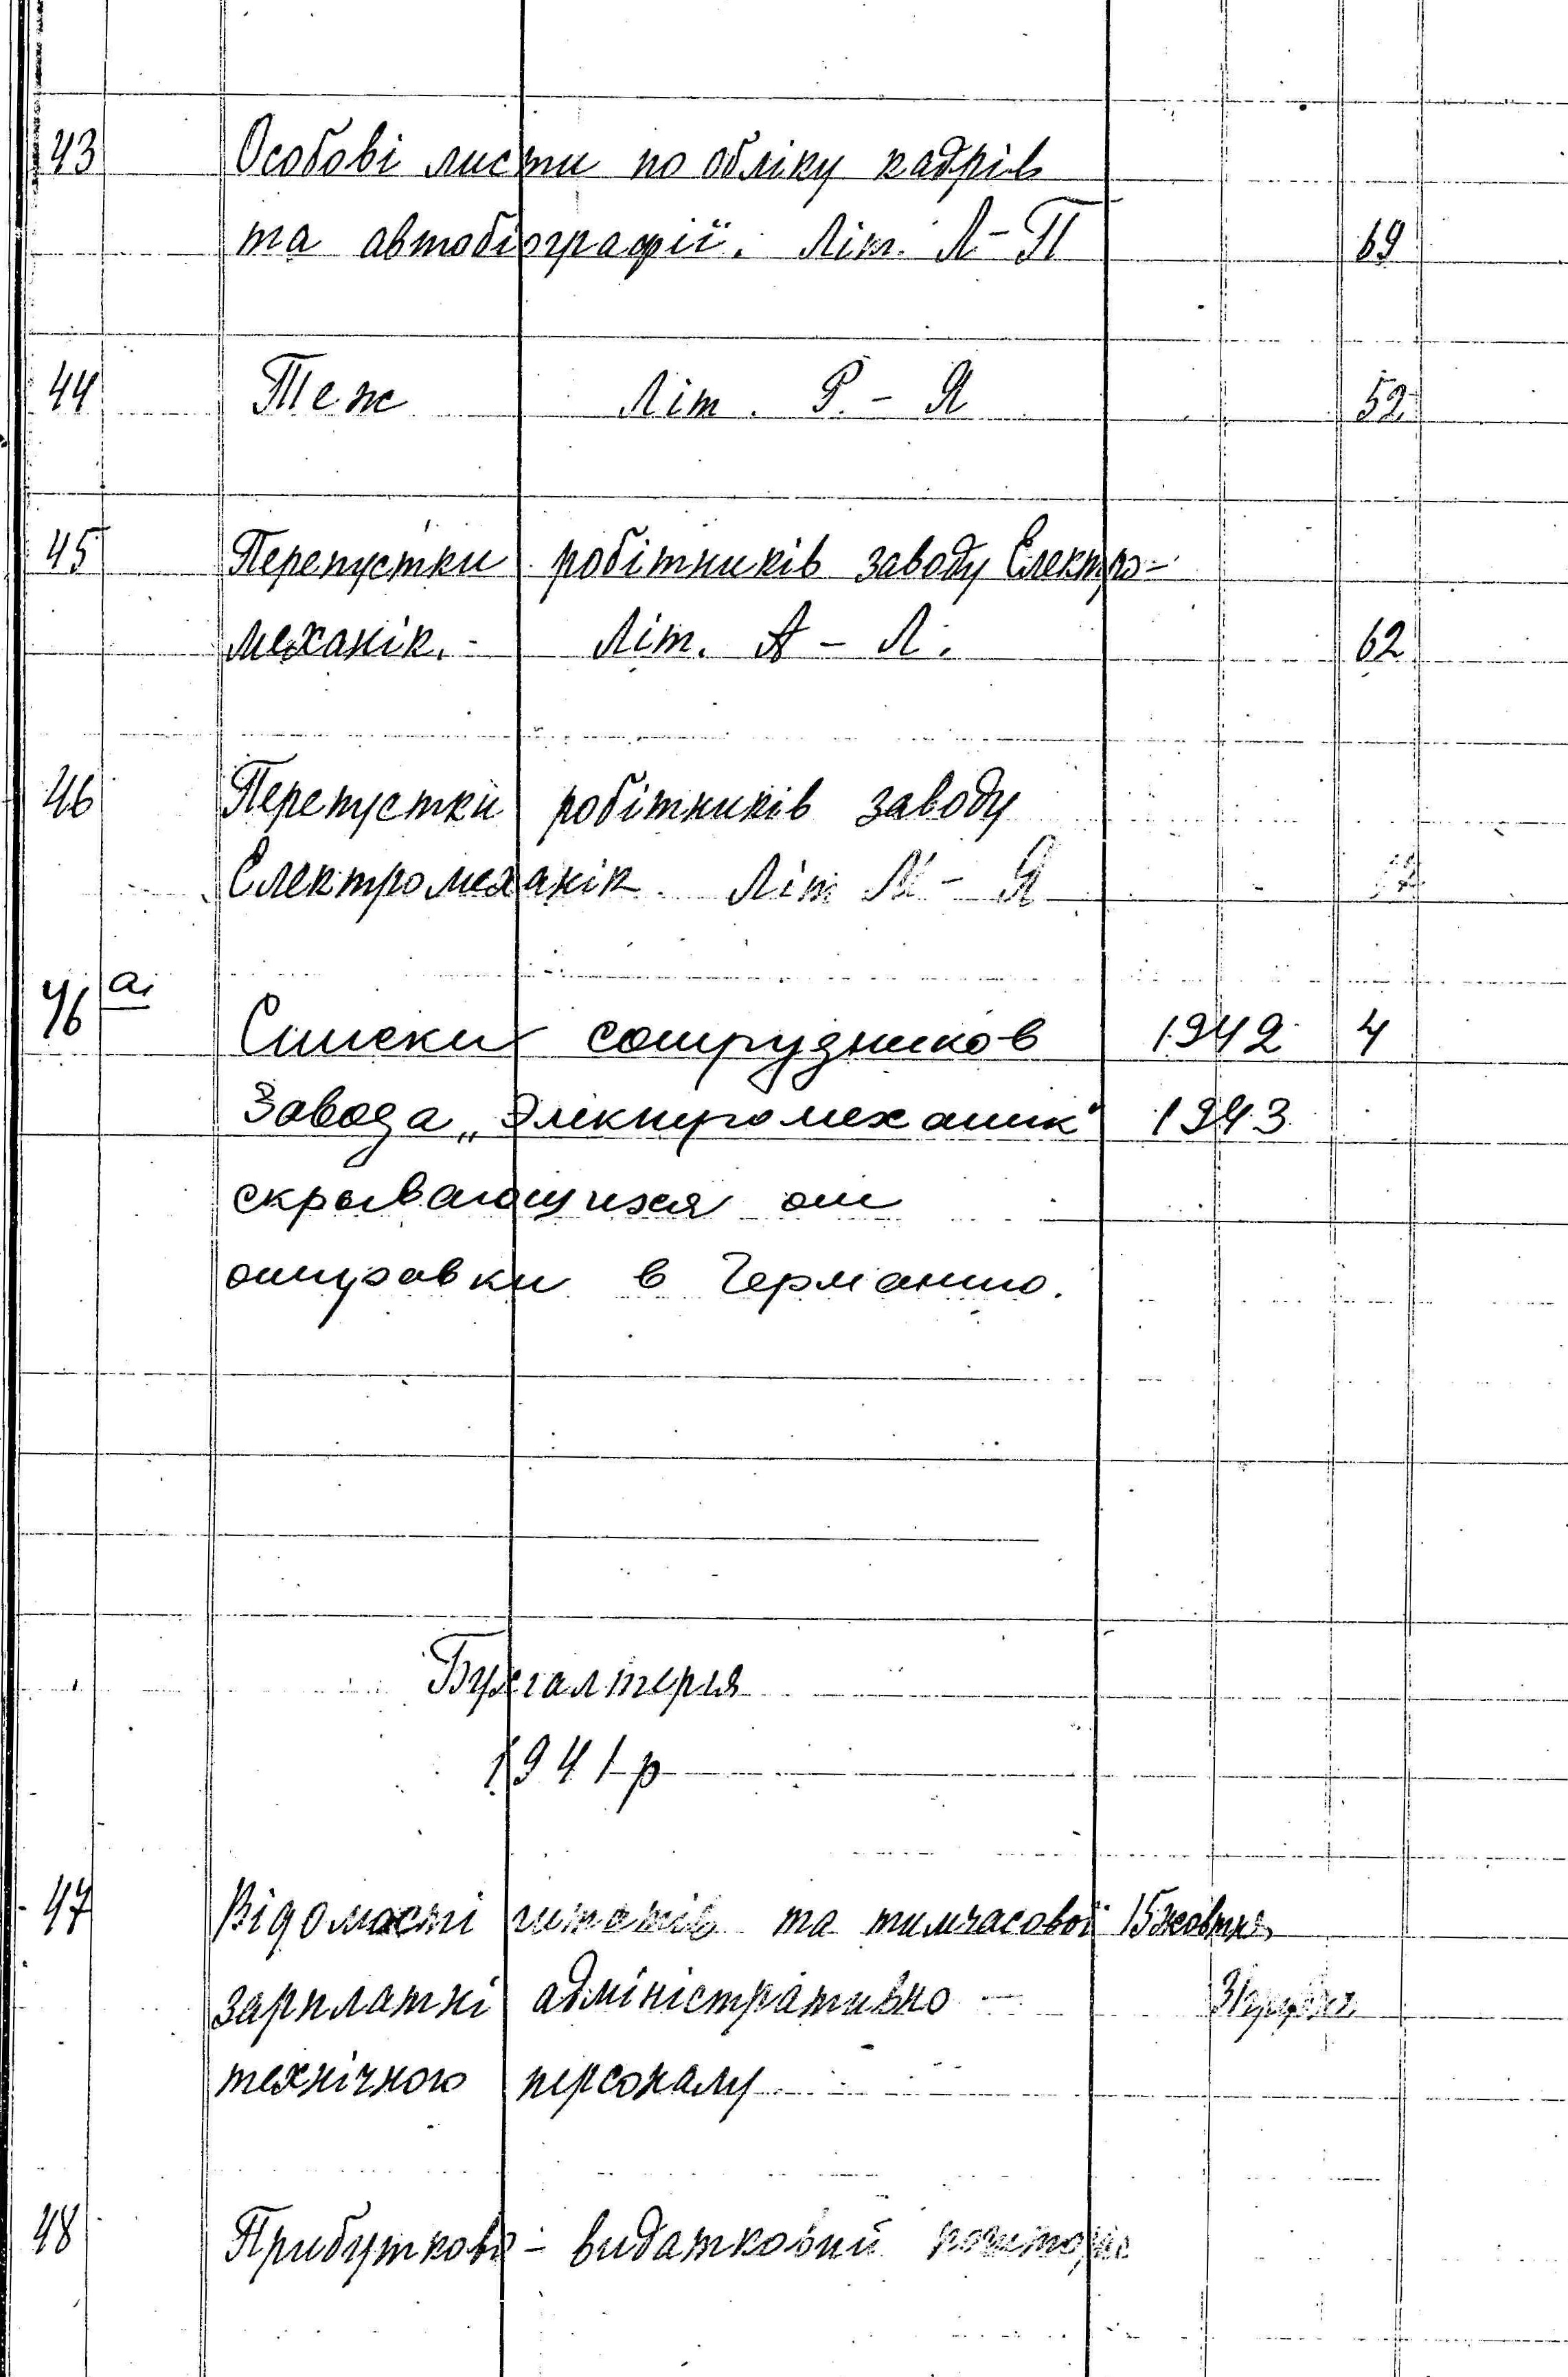 43 Особові листи по обліку кадрів
та автобіографії. Літ. Л-П 69
44 Теж Літ. Р. - Я 52
45 Перепустки робітників заводу Електро-
механік. - Літ. А - Л. 62
46 Перепустки робітників заводу
Електромеханік Літ М - Я
46 а, Списки сотрудников 1942 4
Завода „Электромеханик" 1943
скрывающихся от
отправки в Германию.
Бухгалтерия
1941 р
47 Відомості та тимчасової 15 жовтня
зарплатні адміністративно -
технічного персоналу
48 Прибутково - видатковий